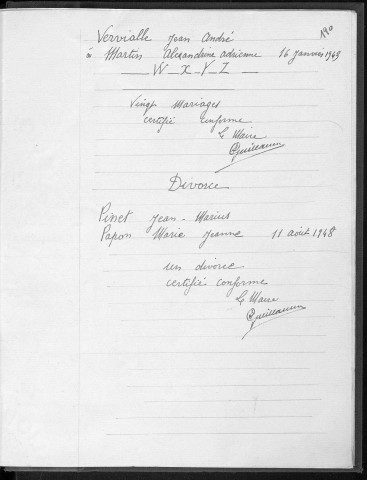 190
Vervialle Jean André
à Martin Alexandrine Adrienne 16 Janvier 1949
W_X_Y_Z_
Vingt Mariages
certifié conforme
Le Maire
Guillaumin
Divorce
Pinet Jean-Marius
Papon Marie Jeanne 11 août 1948
un divorce
certifié conforme
Le Maire
Guillaumin